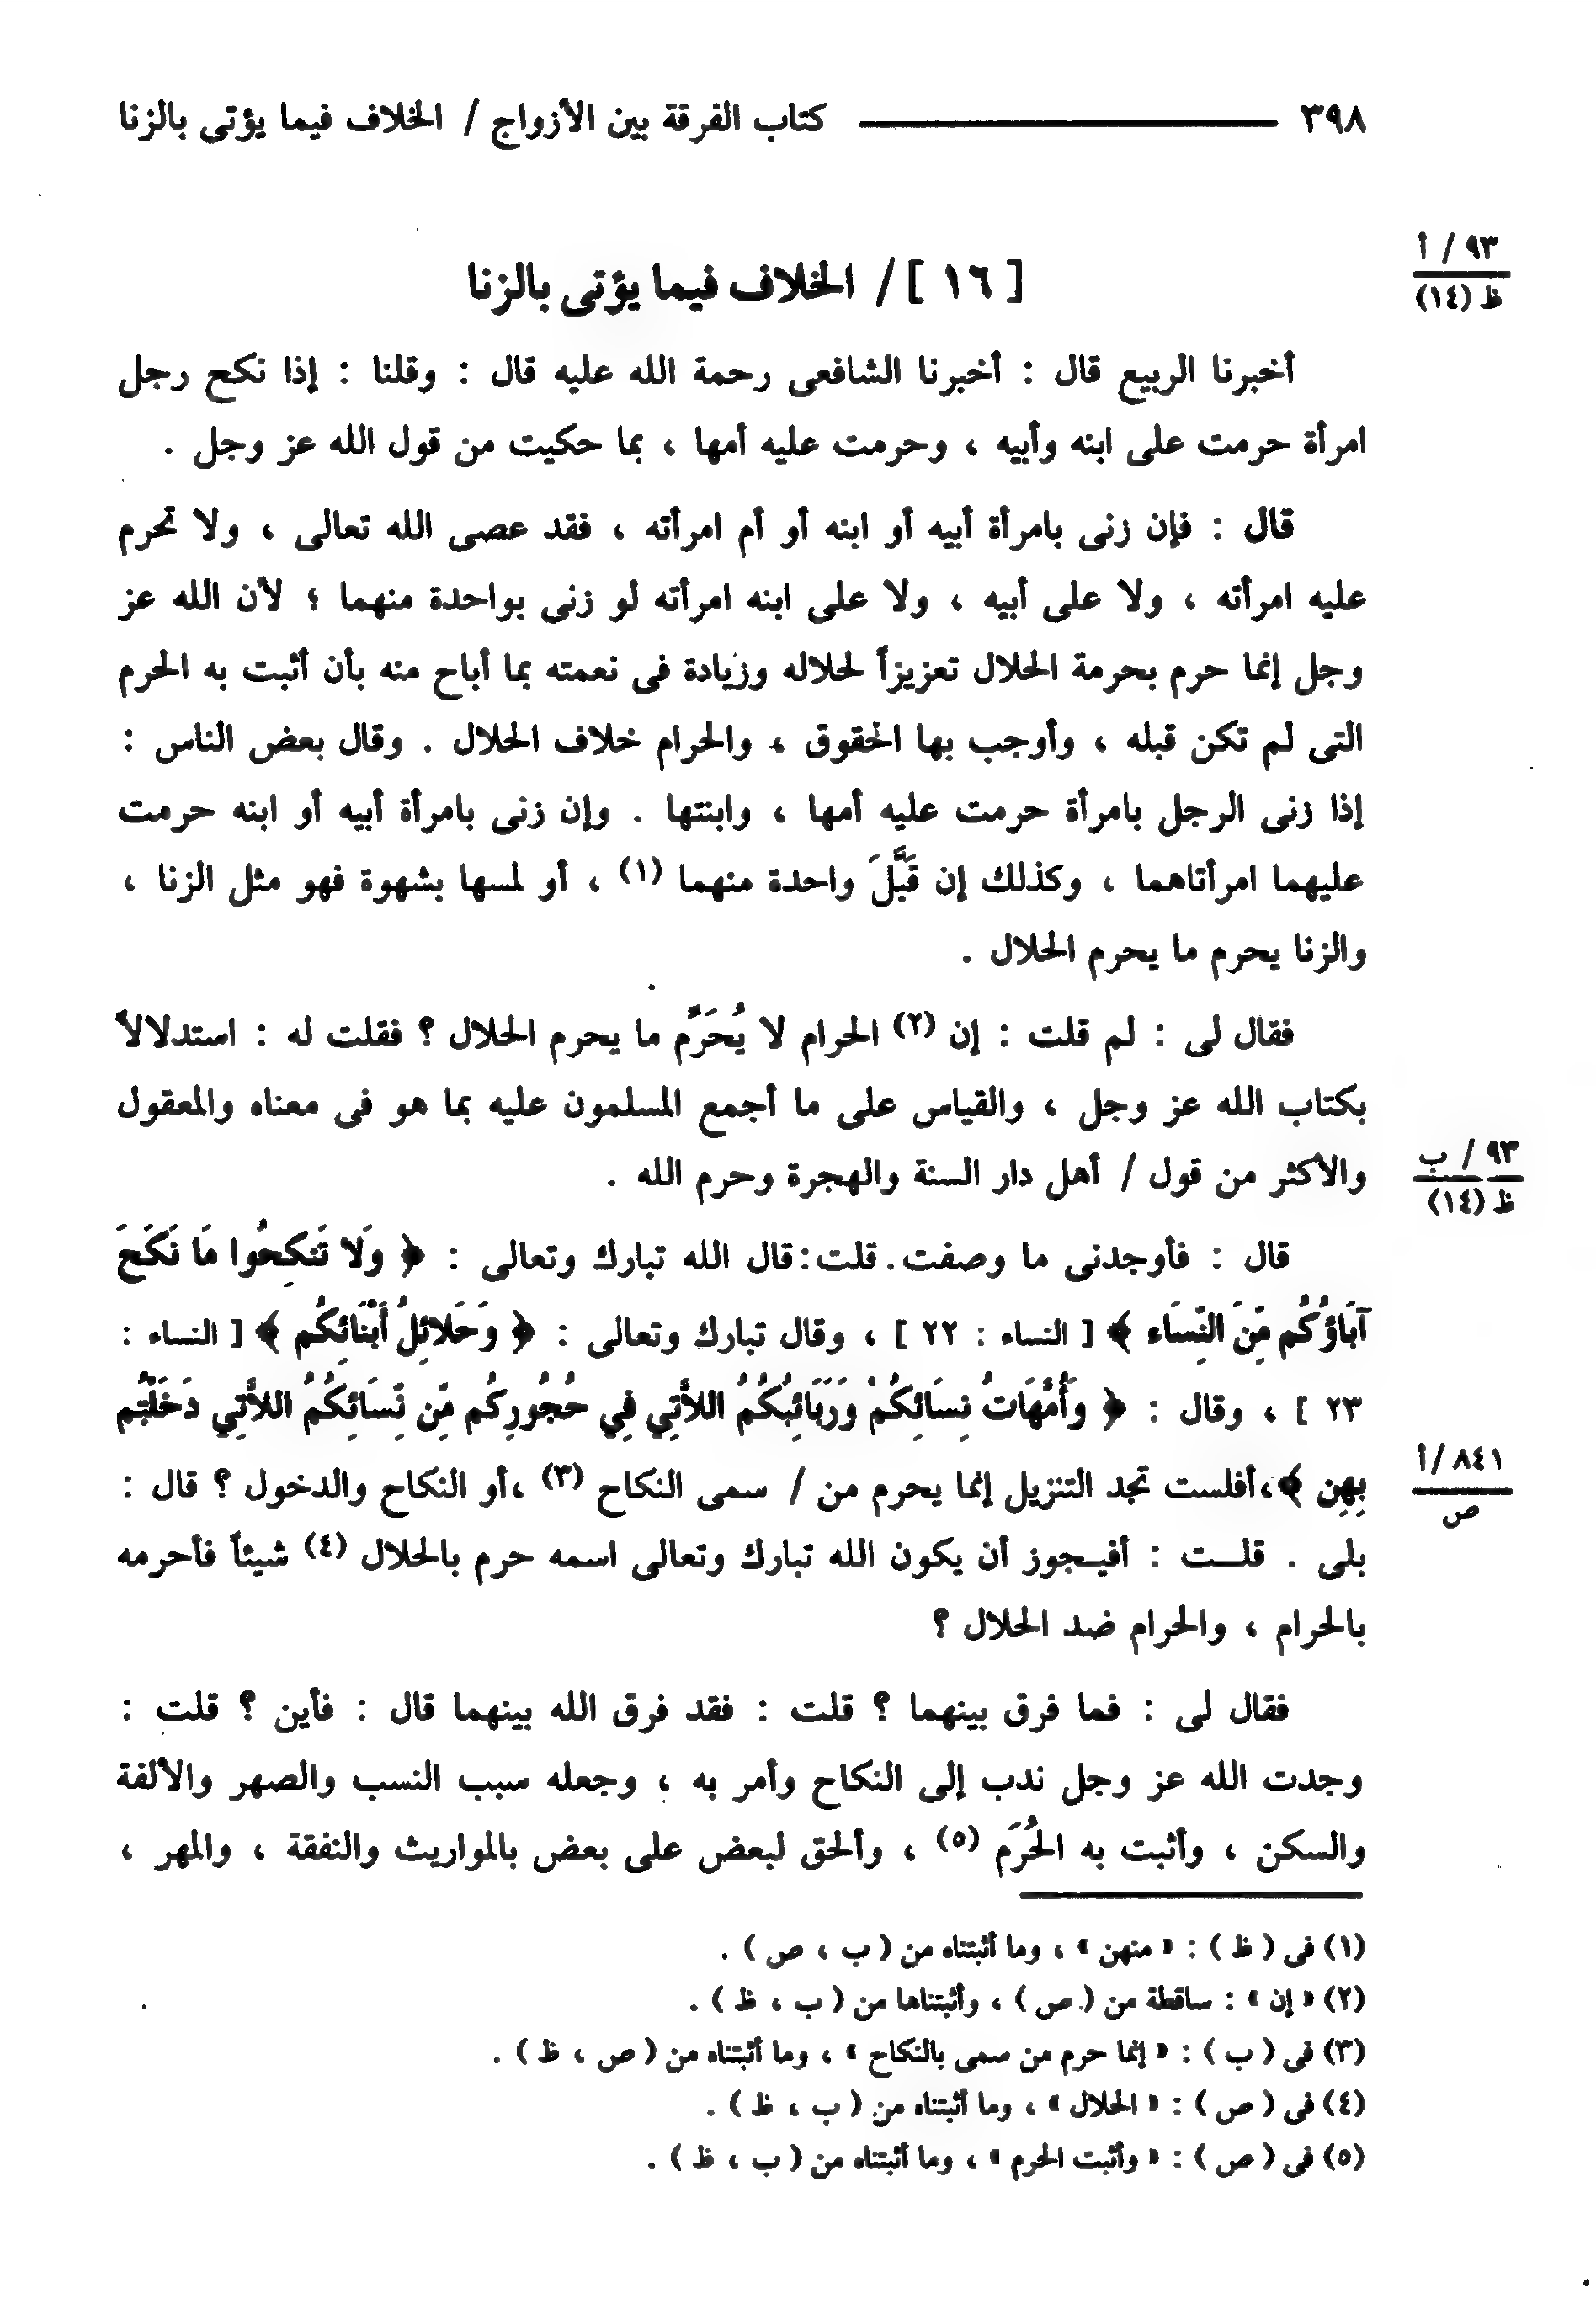 ٣٩٨ ـــــــــــــ كتاب الفرقة بين الأزواج / الخلاف فيما يؤتى بالزنا
٩٣ / أ
ظ (١٤)
[ ١٦ ] / الخلاف فيما يؤتى بالزنا
أخبرنا الربيع قال : أخبرنا الشافعى رحمة الله عليه قال : وقلنا : إذا نكح رجل
امرأة حرمت على ابنه وأبيه ، وحرمت عليه أمها ، بما حكيت من قول الله عز وجل .
قال : فإن زنى بامرأة أبيه أو ابنه أو أم امرأته ، فقد عصى الله تعالى ، ولا تحرم
عليه امرأته ، ولا على أبيه ، ولا على ابنه امرأته لو زنى بواحدة منهما ؛ لأن الله عز
وجل إنما حرم بحرمة الحلال تعزيزاً لحلاله وزيادة فى نعمته بما أباح منه بأن أثبت به الحرم
التى لم تكن قبله ، وأوجب بها الحقوق ، والحرام خلاف الحلال . وقال بعض الناس :
إذا زنى الرجل بامرأة حرمت عليه أمها ، وابنتها . وإن زنى بامرأة أبيه أو ابنه حرمت
عليهما امرأتاهما ، وكذلك إن قَبَّلَ واحدة منهما (١) ، أو لمسها بشهوة فهو مثل الزنا ،
والزنا يحرم ما يحرم الحلال .
فقال لى : لم قلت : إن (٢) الحرام لا يُحَرِّم ما يحرم الحلال ؟ فقلت له : استدلالاً
بكتاب الله عز وجل ، والقياس على ما أجمع المسلمون عليه بما هو فى معناه والمعقول
والأكثر من قول / أهل دار السنة والهجرة وحرم الله .
٩٣ / ب
ظ (١٤)
قال : فأوجدنى ما وصفت. قلت: قال الله تبارك وتعالى : ﴿ وَلا تَنكِحُوا مَا نَكَحَ
آبَاؤُكُم مِّنَ النِّسَاء ﴾ [ النساء : ٢٢ ] ، وقال تبارك وتعالى : ﴿ وَحَلائِلُ أَبْنَائِكُم ﴾ [ النساء :
٢٣ ] ، وقال : ﴿ وَأُمَّهَاتُ نِسَائِكُمْ وَرَبَائِبُكُمُ اللاَّتِي فِي حُجُورِكُم مِّن نِّسَائِكُمُ اللاَّتِي دَخَلْتُم
بِهِن ﴾،أفلست تجد التنزيل إنما يحرم من / سمى النكاح (٣) ،أو النكاح والدخول ؟ قال :
٨٤١ /أ
ص
بلى . قلـــت : أفيـجوز أن يكون الله تبارك وتعالى اسمه حرم بالحلال (٤) شيئاً فأحرمه
بالحرام ، والحرام ضد الحلال ؟
فقال لى : فما فرق بينهما ؟ قلت : فقد فرق الله بينهما قال : فأين ؟ قلت :
وجدت الله عز وجل ندب إلى النكاح وأمر به ، وجعله سبب النسب والصهر والألفة
والسكن ، وأثبت به الحُرَم (٥) ، وألحق لبعض على بعض بالمواريث والنفقة ، والمهر ،
(١) فى ( ظ ) : « منهن » ، وما أثبتناه من ( ب ، ص ) .
(٢) « إن » : ساقطة من ( ص ) ، وأثبتناها من ( ب ، ظ ) .
(٣) فى ( ب ) : « إنما حرم من سمى بالنكاح » ، وما أثبتناه من ( ص ، ظ ) .
(٤) فى ( ص ) : « الحلال » ، وما أثبتناه من ( ب ، ظ ) .
(٥) فى ( ص ) : « وأثبت الحرم » ، وما أثبتناه من ( ب ، ظ ) .